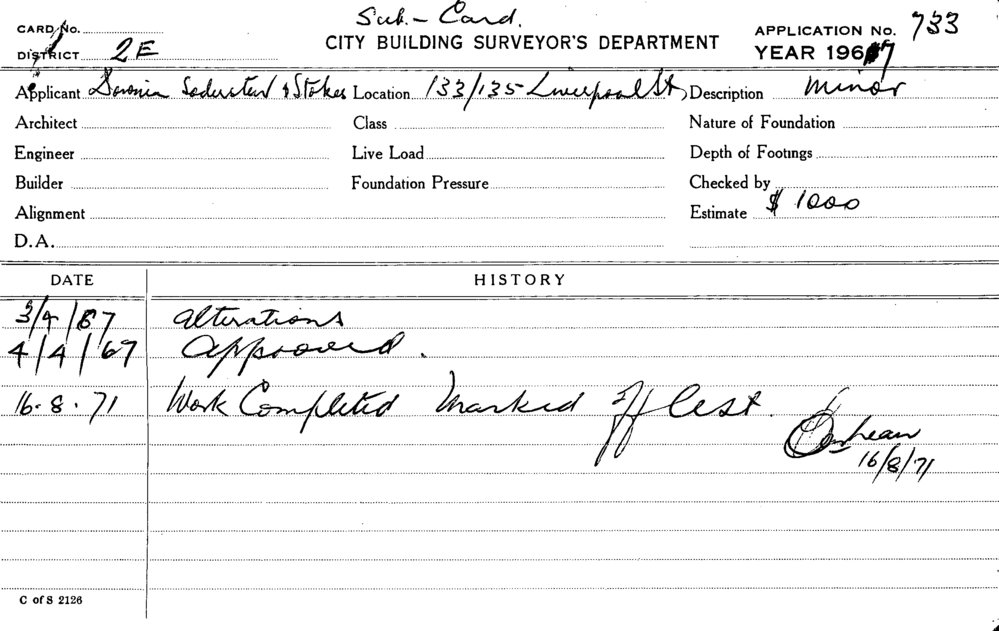 Sub-Card.
CARD No.
CITY BUILDING SURVEYOR'S DEPARTMENT
APPLICATION No. 733
DISTRICT 2E
YEAR 1967
Applicant Sodersten & Stokes Location 133/135 Liverpool St, Description Minor
Architect Class Nature of Foundation
Engineer Live Load Depth of Footings
Builder Foundation Pressure Checked by
Alignment Estimate $ 1000
D.A.
DATE HISTORY
3/4/67 Alterations
4/4/67 Approved.
16.8.71 Work Completed Marked off
16/8/71
C of S 2126